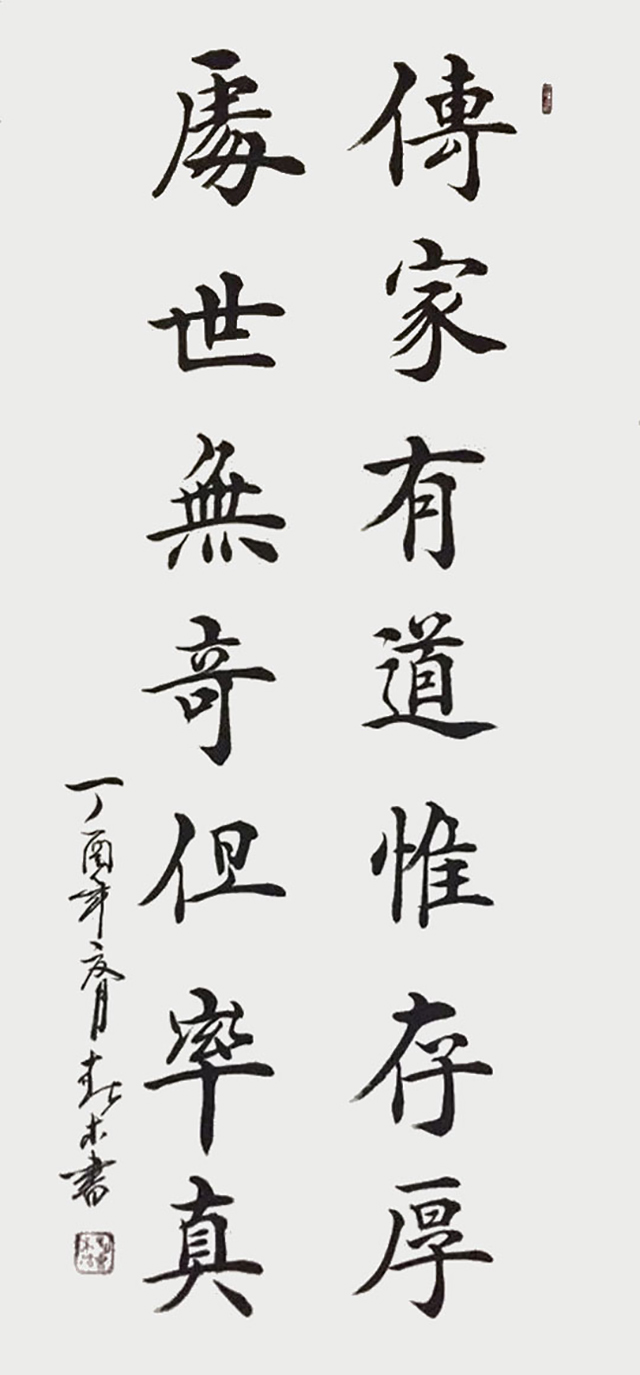 傳家有道惟存厚
處世無奇但率真
丁酉年夏月春木書